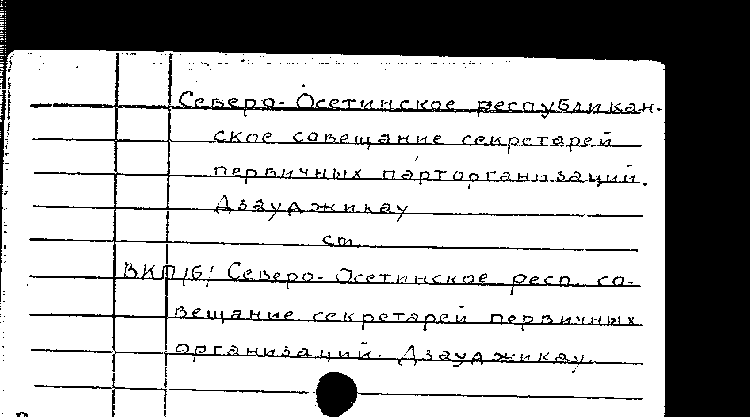 Северо-Осетинское республикан-
ское совещание секретарей
первичных парторганизаций.
Дзауджикау
см.
ВКП/б/ Северо-Осетинское респ. со-
вещание секретарей первичных
организаций. Дзауджикау.